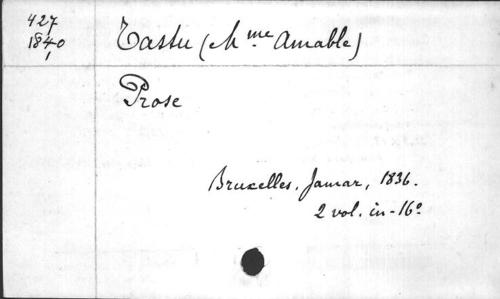 427
1840
1
Tastu (Mme Amable)
Prose
Bruxelles, Jamar, 1836.
2 vol. in-16°